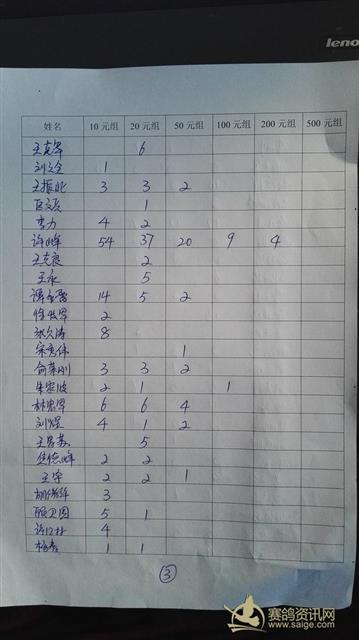 lenovo
姓名 10元组 20元组 50元组 100元组 200元组 500元组
王克军 6
刘全 1
王振北 3 3 2
1
李力 4 2
许峰 54 37 20 9 4
王克良 2
王永 5
14 5 2
2
张久涛 8
宋惠伟 1
俞荣刚 3 3 2
朱宝波 2 1 1
林忠军 6 6 4
刘煜 4 1 2
王昌荪 5
焦德峰 2 2
王宇 2 2 1
3
顾卫国 5 1
4
杨青 1 1
③
赛鸽资讯网
www.saige.com